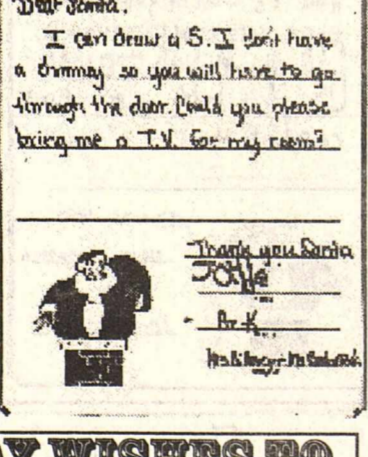 Dear Santa,
I can draw a S. I don't have
a chimney so you will have to go
through the door. Could you please
bring me a T.V. for my room?
Thank you Santa
Gr. K
WISHES TO